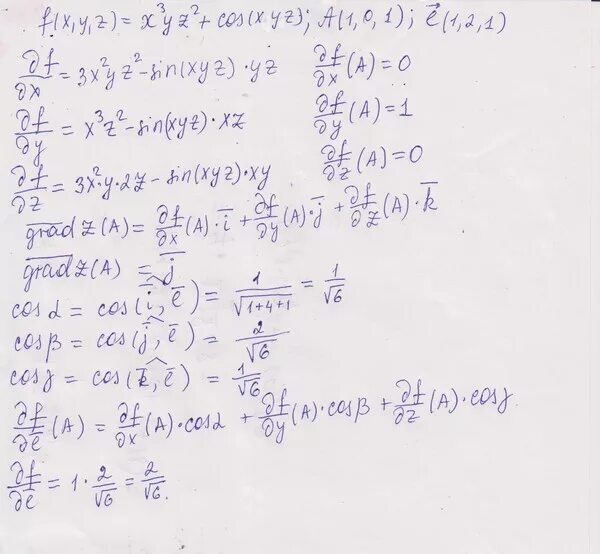 f(x,y,z) = x³yz² + cos(xyz); A(1,0,1); e⃗(1,2,1)
∂f/∂x = 3x²yz² - sin(xyz)·yz ∂f/∂x(A) = 0
∂f/∂y = x³z² - sin(xyz)·xz ∂f/∂y(A) = 1
∂f/∂z = 3x²·y·2z - sin(xyz)·xy ∂f/∂z(A) = 0
grad z(A) = ∂f/∂x(A)·i̅ + ∂f/∂y(A)·j̅ + ∂f/∂z(A)·k̅
grad z(A) = j̅
cos α = cos(i̅,^e̅) = 1/√(1+4+1) = 1/√6
cos β = cos(j̅,^e̅) = 2/√6
cos γ = cos(k̅,^e̅) = 1/√6
∂f/∂e̅(A) = ∂f/∂x(A)·cos α + ∂f/∂y(A)·cos β + ∂f/∂z(A)·cos γ
∂f/∂e̅ = 1·2/√6 = 2/√6.